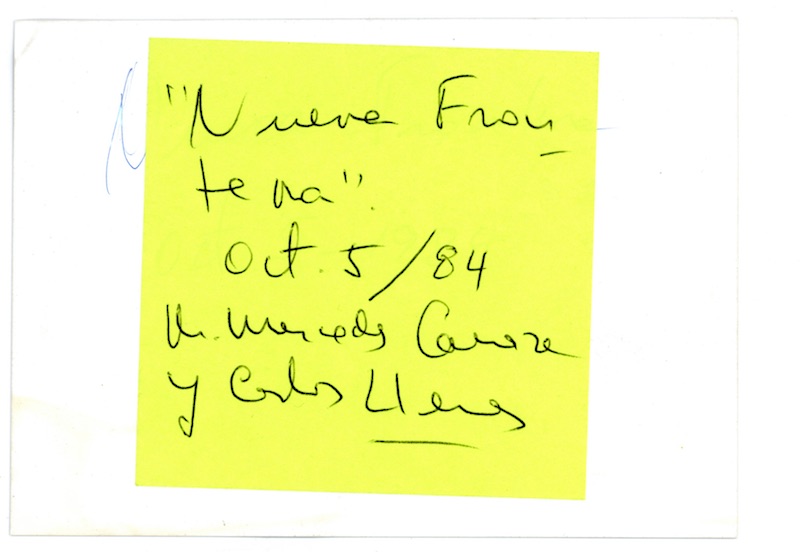 "Nueva Fron
tera".
Oct. 5/84
M. Mercedes Carranza
y Carlos Lleras